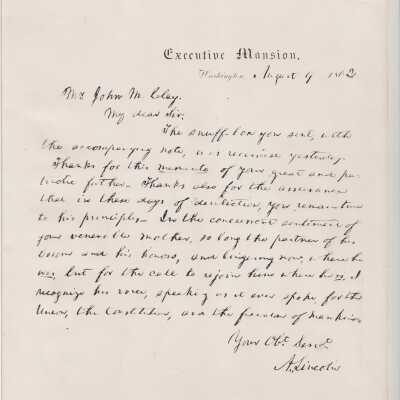 Executive Mansion,
Washington, August 9, 1862
Mr. John M. Clay.
My dear Sir:
The snuff-box you sent, with
the accompanying note, was received yesterday.
Thanks for this memento of your great and pa-
triotic father. Thanks also for the assurance
that in these days of dereliction, you remain true
to his principles. In the concurrent sentiment of
your venerable mother, so long the partner of his
bosom and his honors, and lingering now, where he
was, but for the call to rejoin him where he is, I
recognize his voice, speaking as it ever spoke, for the
Union, the Constitution, and the freedom of mankind.
Your Obt. Servt.
A. Lincoln